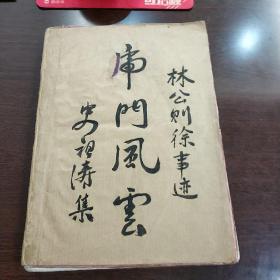 林公则徐事迹
虎門風雲
史祖涛集